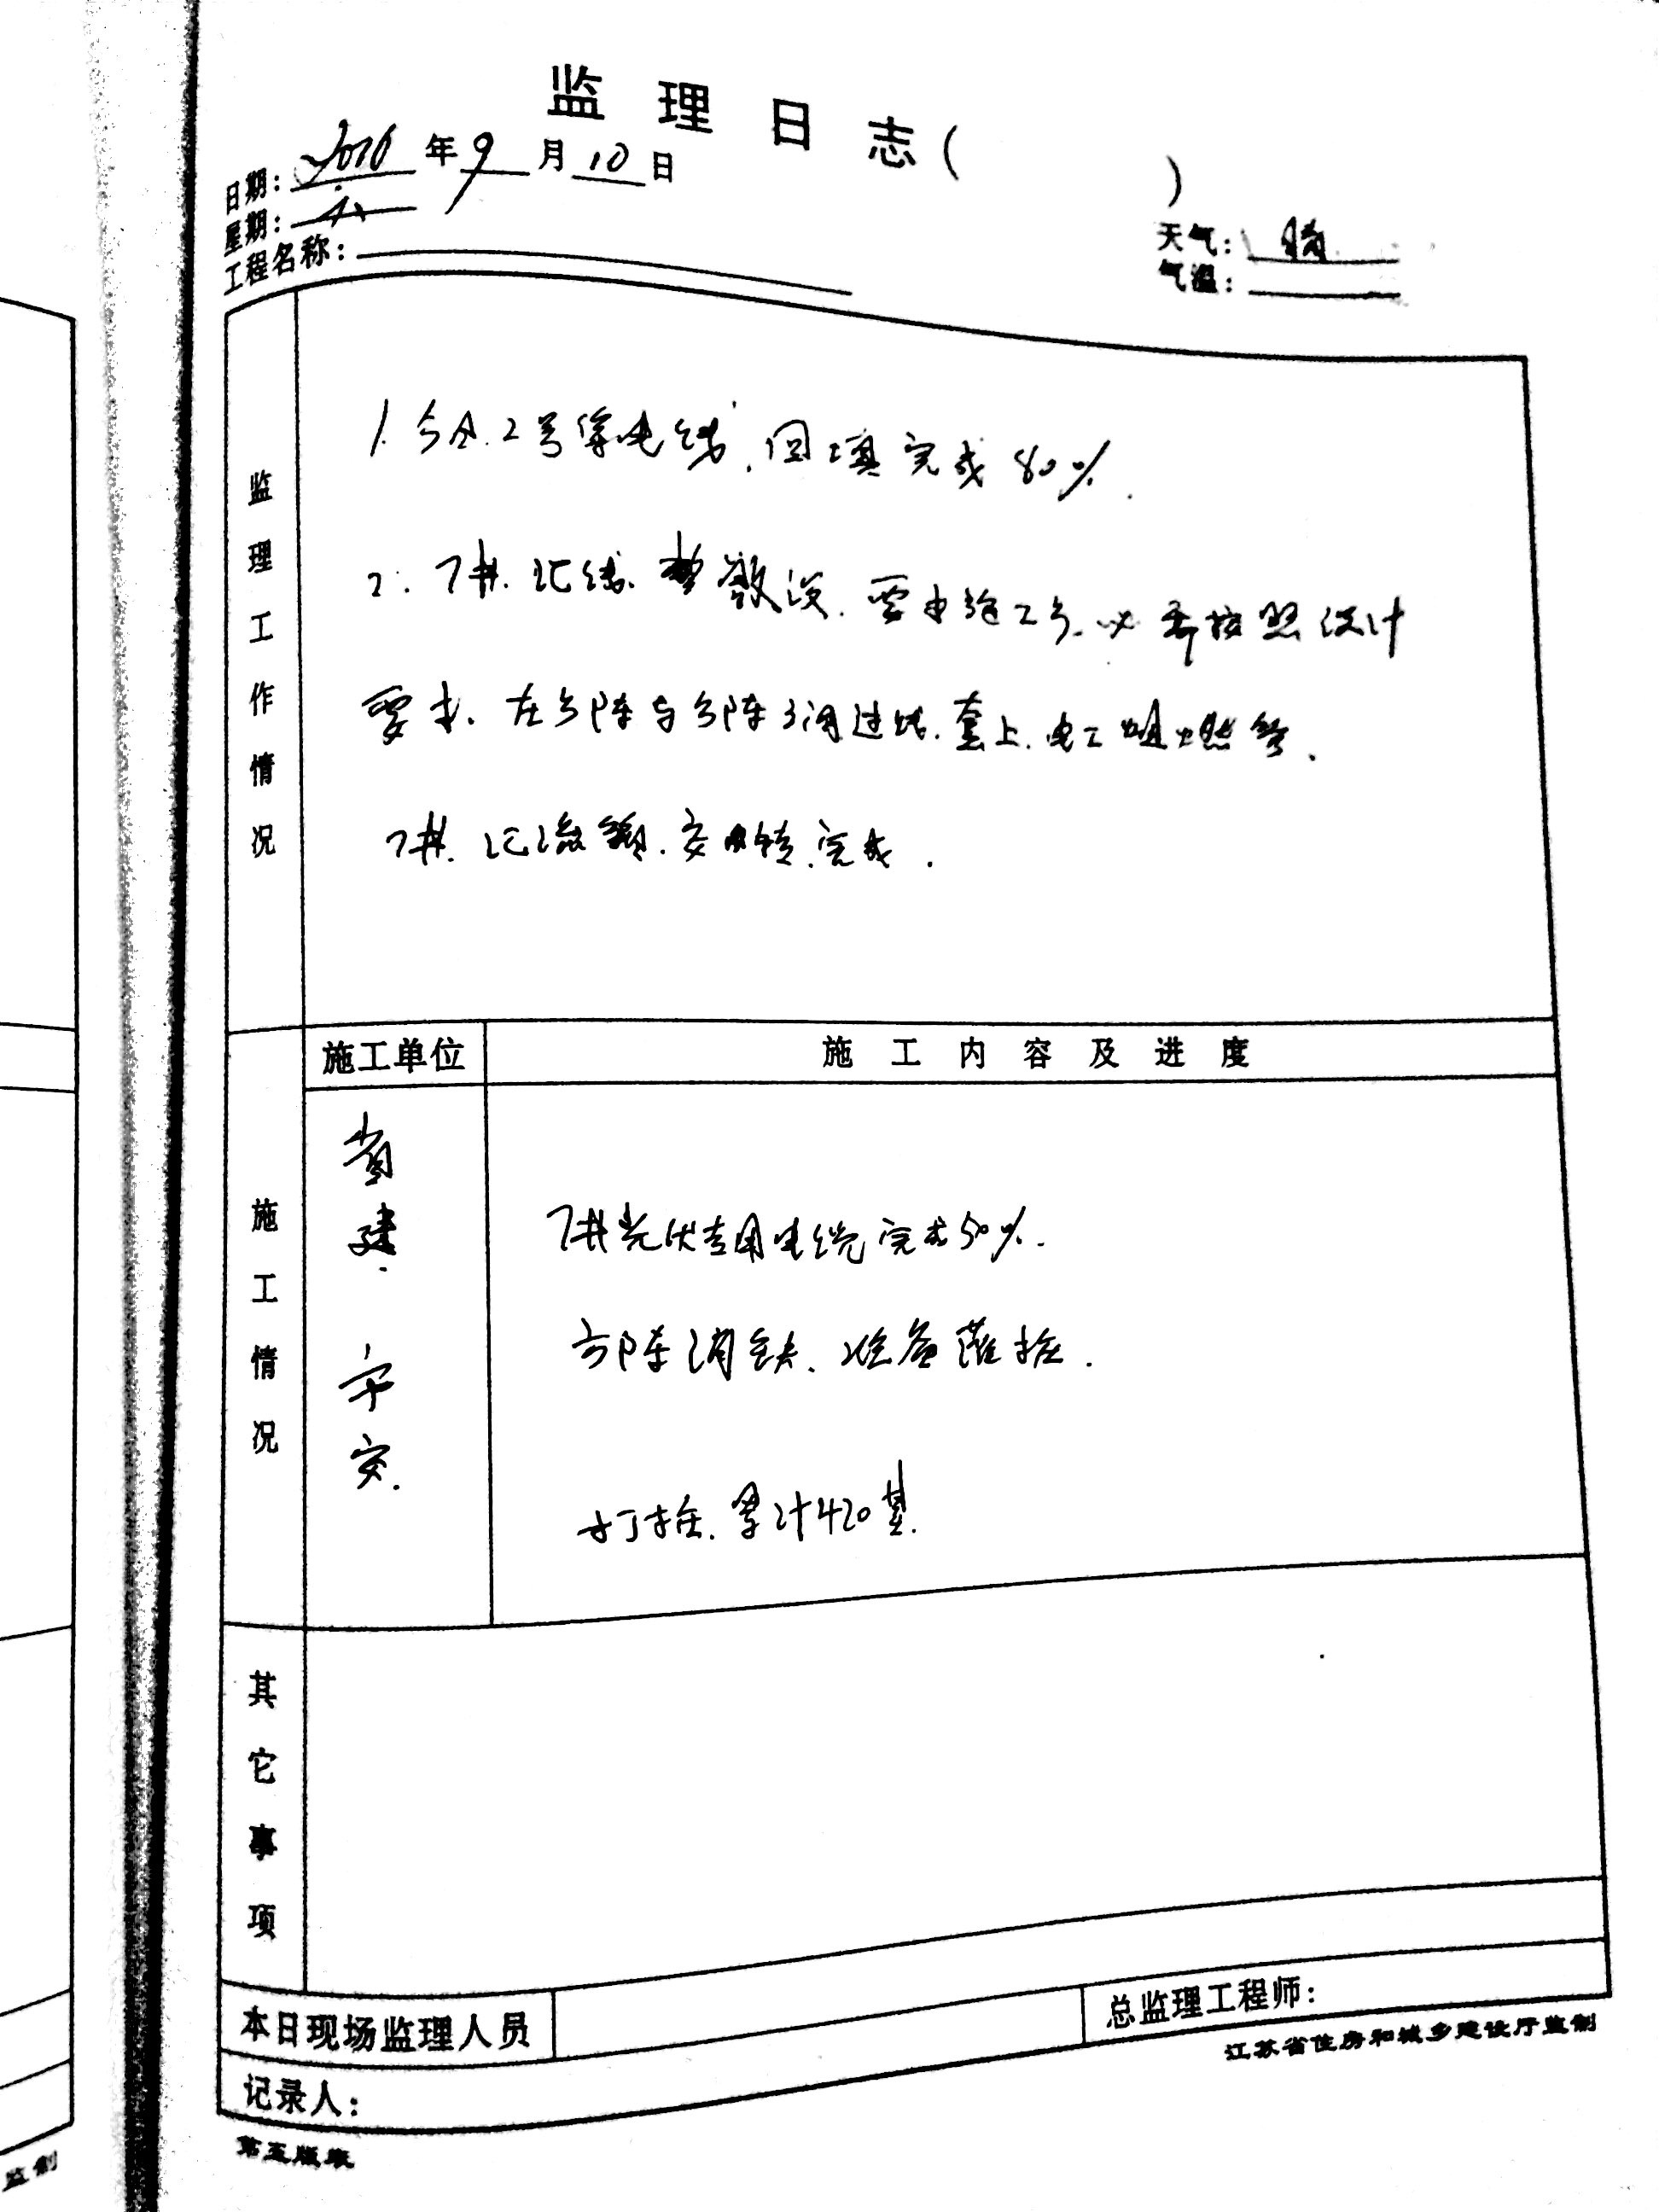 监理日志（ ）
日期：2016年9月10日
星期：六
天气：晴
工程名称：
气温：
监理工作情况
1.今天.2号集电线.回填完成80%.
2.7#.汇线.整敷设.要求施工方.必须按照设计
要求.在方阵与方阵之间过线.套上.电工阻燃管.
7#.汇流箱.安装完成.
施工情况
施工单位
施工内容及进度
省建.
宁安.
7#光伏专用电缆完成50%.
方阵消缺.准备灌桩.
打桩.累计420基.
其它事项
本日现场监理人员
总监理工程师：
记录人：
江苏省住房和城乡建设厅监制
第五版表
监制